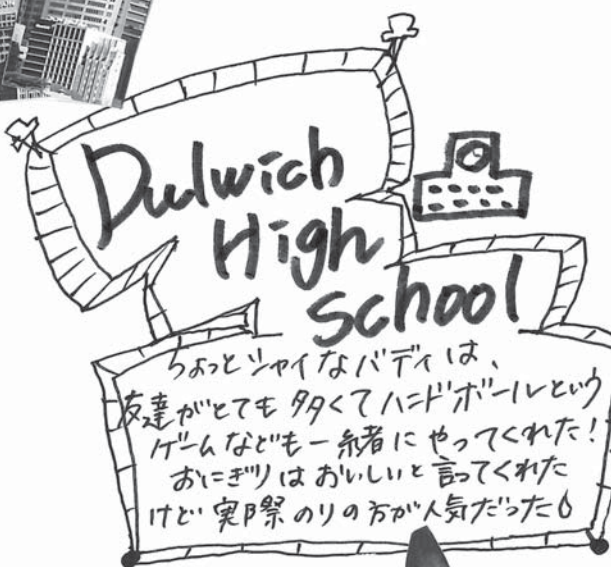 Dulwich
High
School
ちょっとシャイなバディは、
友達がとても多くてハンドボールという
ゲームなども一緒にやってくれた!
おにぎりはおいしいと言ってくれた
けど実際のりの方が人気だった